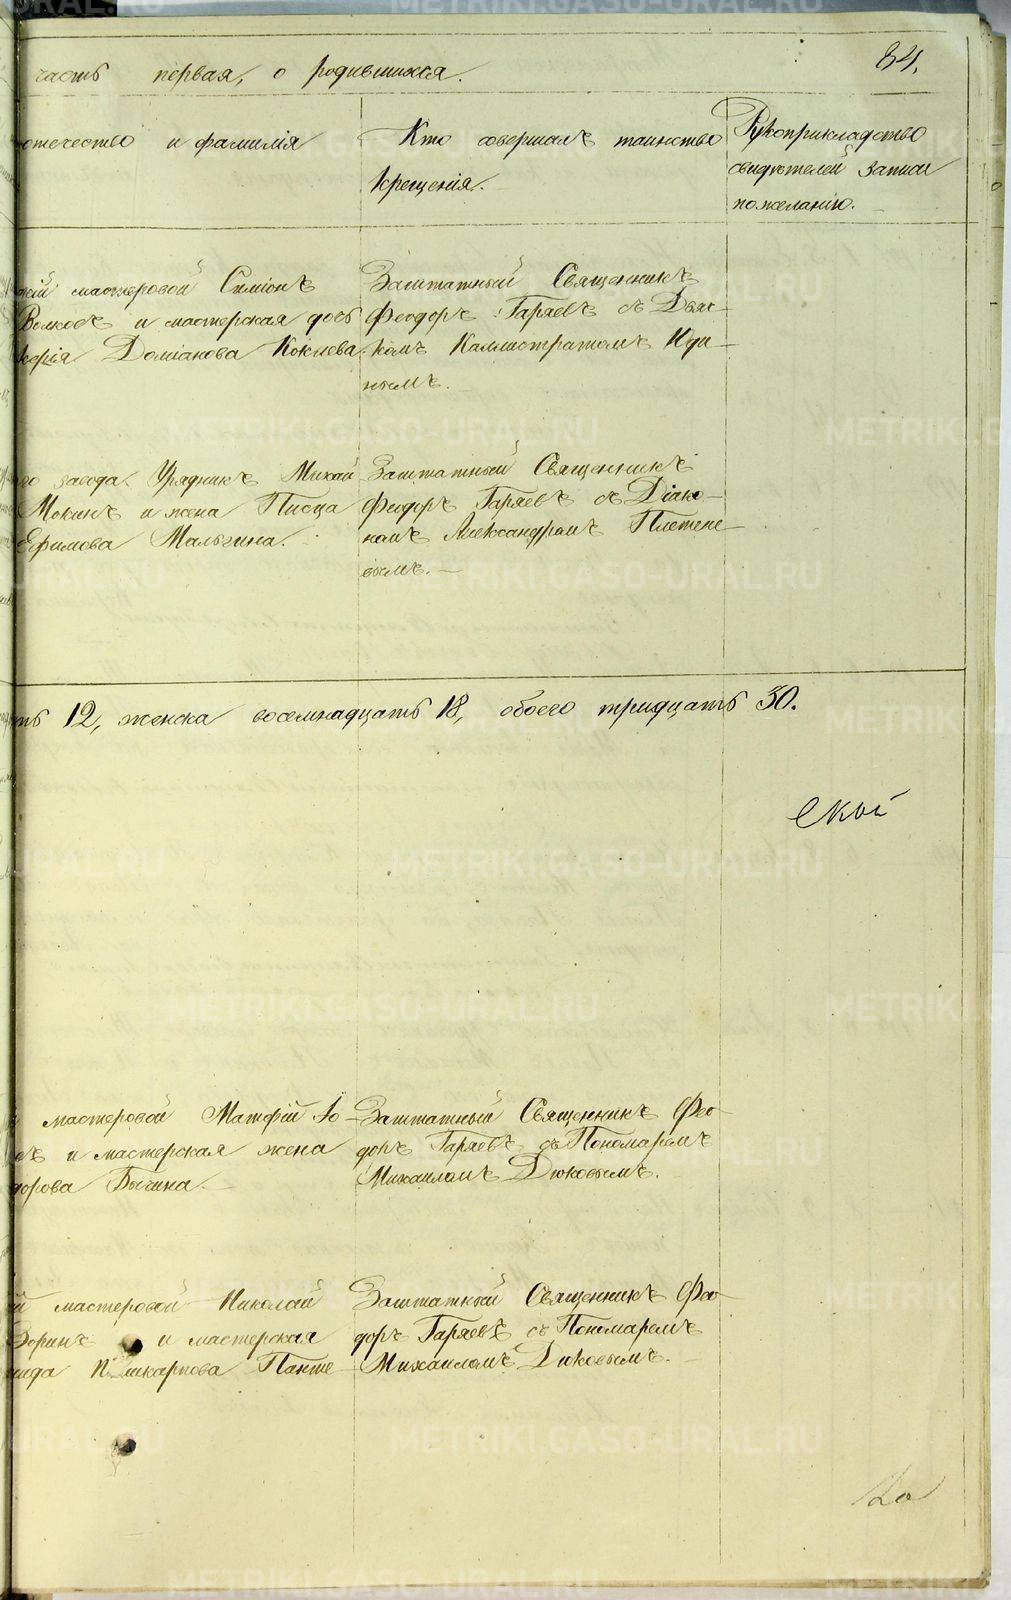 часть первая, о родившихся.
84.
отечество и фамилія
Кто совершалъ таинство
крещенія.
Рукоприкладство
свидѣтелей записи
по желанію.
мастеровой Симіонъ
Волковъ и мастерская дочь
Доміанова Коклева.
Заштатный Священникъ
Феодоръ Гаряевъ съ Дьяч-
комъ Каллистратомъ Юди-
нымъ.
завода Урядникъ Михаи
Мокинъ и жена Писца
Ефимова Малыгина.
Заштатный Священникъ
Феодоръ Гаряевъ съ Діако-
номъ Александромъ Плетене-
вымъ.
12, женска восемнадцать 18, обоего тридцать 30.
ской
мастеровой Матфій
и мастерская жена
Бычина.
Заштатный Священникъ Фео-
доръ Гаряевъ съ Пономаремъ
Михаиломъ Дюковымъ.
мастеровой Николай
Зоринъ и мастерская
Панте
Заштатный Священникъ Фео-
доръ Гаряевъ съ Пономаремъ
Михаиломъ Дюковымъ.
METRIKI.GASO-URAL.RU